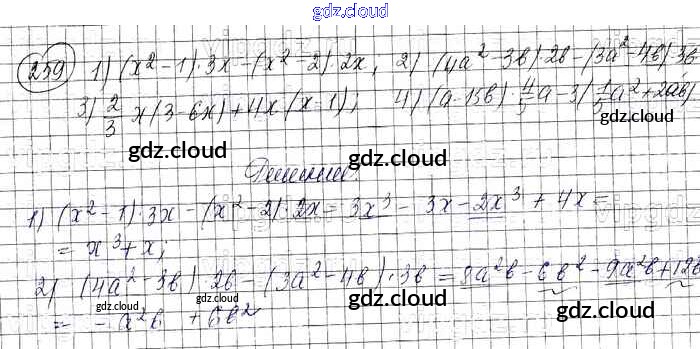 gdz.cloud
259 1) (x² - 1)·3x - (x² - 2)·2x; 2) (4a² - 3b)·2b - (3a² - 4b)·3b
3) 2/3 x (3 - 6x) + 4x (x - 1); 4) (a - 15b)·4/5 a - 3(1/5 a² + 2ab)
gdz.cloud gdz.cloud
Решение:
gdz.cloud gdz.cloud
1) (x² - 1)·3x - (x² - 2)·2x = 3x³ - 3x - 2x³ + 4x =
= x³ + x;
2) (4a² - 3b)·2b - (3a² - 4b)·3b = 8a²b - 6b² - 9a²b + 12b
gdz.cloud gdz.cloud gdz.cloud
= -a²b + 6b²
gdz.cloud